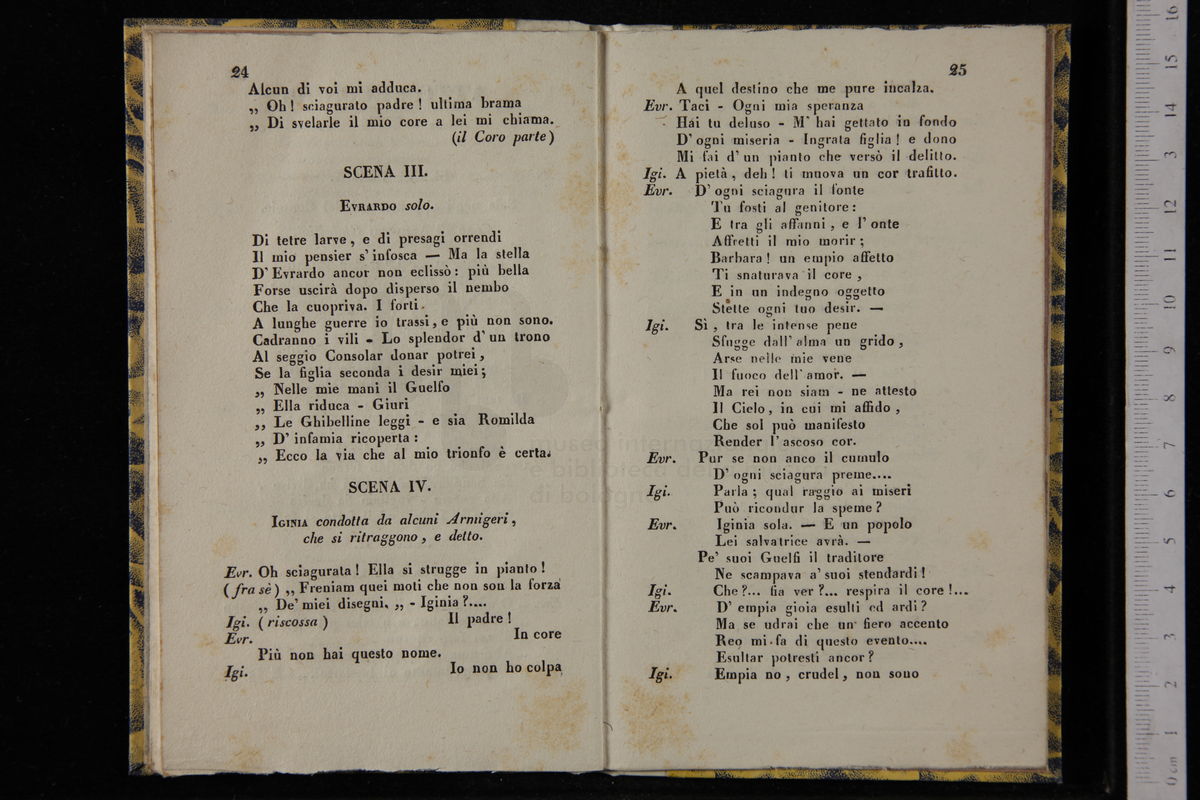 24
Alcun di voi mi adduca.
„ Oh! sciagurato padre! ultima brama
„ Di svelarle il mio core a lei mi chiama.
(il Coro parte)
SCENA III.
EVRARDO solo.
Di tetre larve, e di presagi orrendi
Il mio pensier s'infosca — Ma la stella
D'Evrardo ancor non eclissò: più bella
Forse uscirà dopo disperso il nembo
Che la cuopriva. I forti
A lunghe guerre io trassi, e più non sono.
Cadranno i vili - Lo splendor d'un trono
Al seggio Consolar donar potrei,
Se la figlia seconda i desir miei;
„ Nelle mie mani il Guelfo
„ Ella riduca - Giuri
„ Le Ghibelline leggi - e sia Romilda
„ D'infamia ricoperta:
„ Ecco la via che al mio trionfo è certa.
SCENA IV.
IGINIA condotta da alcuni Armigeri,
che si ritraggono, e detto.
Evr. Oh sciagurata! Ella si strugge in pianto!
(fra sè) „ Freniam quei moti che non son la forza
„ De'miei disegni. „ - Iginia?....
Igi. (riscossa) Il padre!
Evr. In core
Più non hai questo nome.
Igi. Io non ho colpa
25
A quel destino che me pure incalza.
Evr. Taci - Ogni mia speranza
Hai tu deluso - M'hai gettato in fondo
D'ogni miseria - Ingrata figlia! e dono
Mi fai d'un pianto che versò il delitto.
Igi. A pietà, deh! ti muova un cor trafitto.
Evr. D'ogni sciagura il fonte
Tu fosti al genitore:
E tra gli affanni, e l'onte
Affretti il mio morir;
Barbara! un empio affetto
Ti snaturava il core,
E in un indegno oggetto
Stette ogni tuo desir. —
Igi. Sì, tra le intense pene
Sfugge dall'alma un grido,
Arse nelle mie vene
Il fuoco dell'amor. —
Ma rei non siam - ne attesto
Il Cielo, in cui mi affido,
Che sol può manifesto
Render l'ascoso cor.
Evr. Pur se non anco il cumulo
D'ogni sciagura preme....
Igi. Parla; qual raggio ai miseri
Può ricondur la speme?
Evr. Iginia sola. — E un popolo
Lei salvatrice avrà. —
Pe' suoi Guelfi il traditore
Ne scampava a'suoi stendardi!
Igi. Che?... fia ver?... respira il core!...
Evr. D'empia gioia esulti ed ardi?
Ma se udrai che un fiero accento
Reo mi fa di questo evento....
Esultar potresti ancor?
Igi. Empia no, crudel, non sono